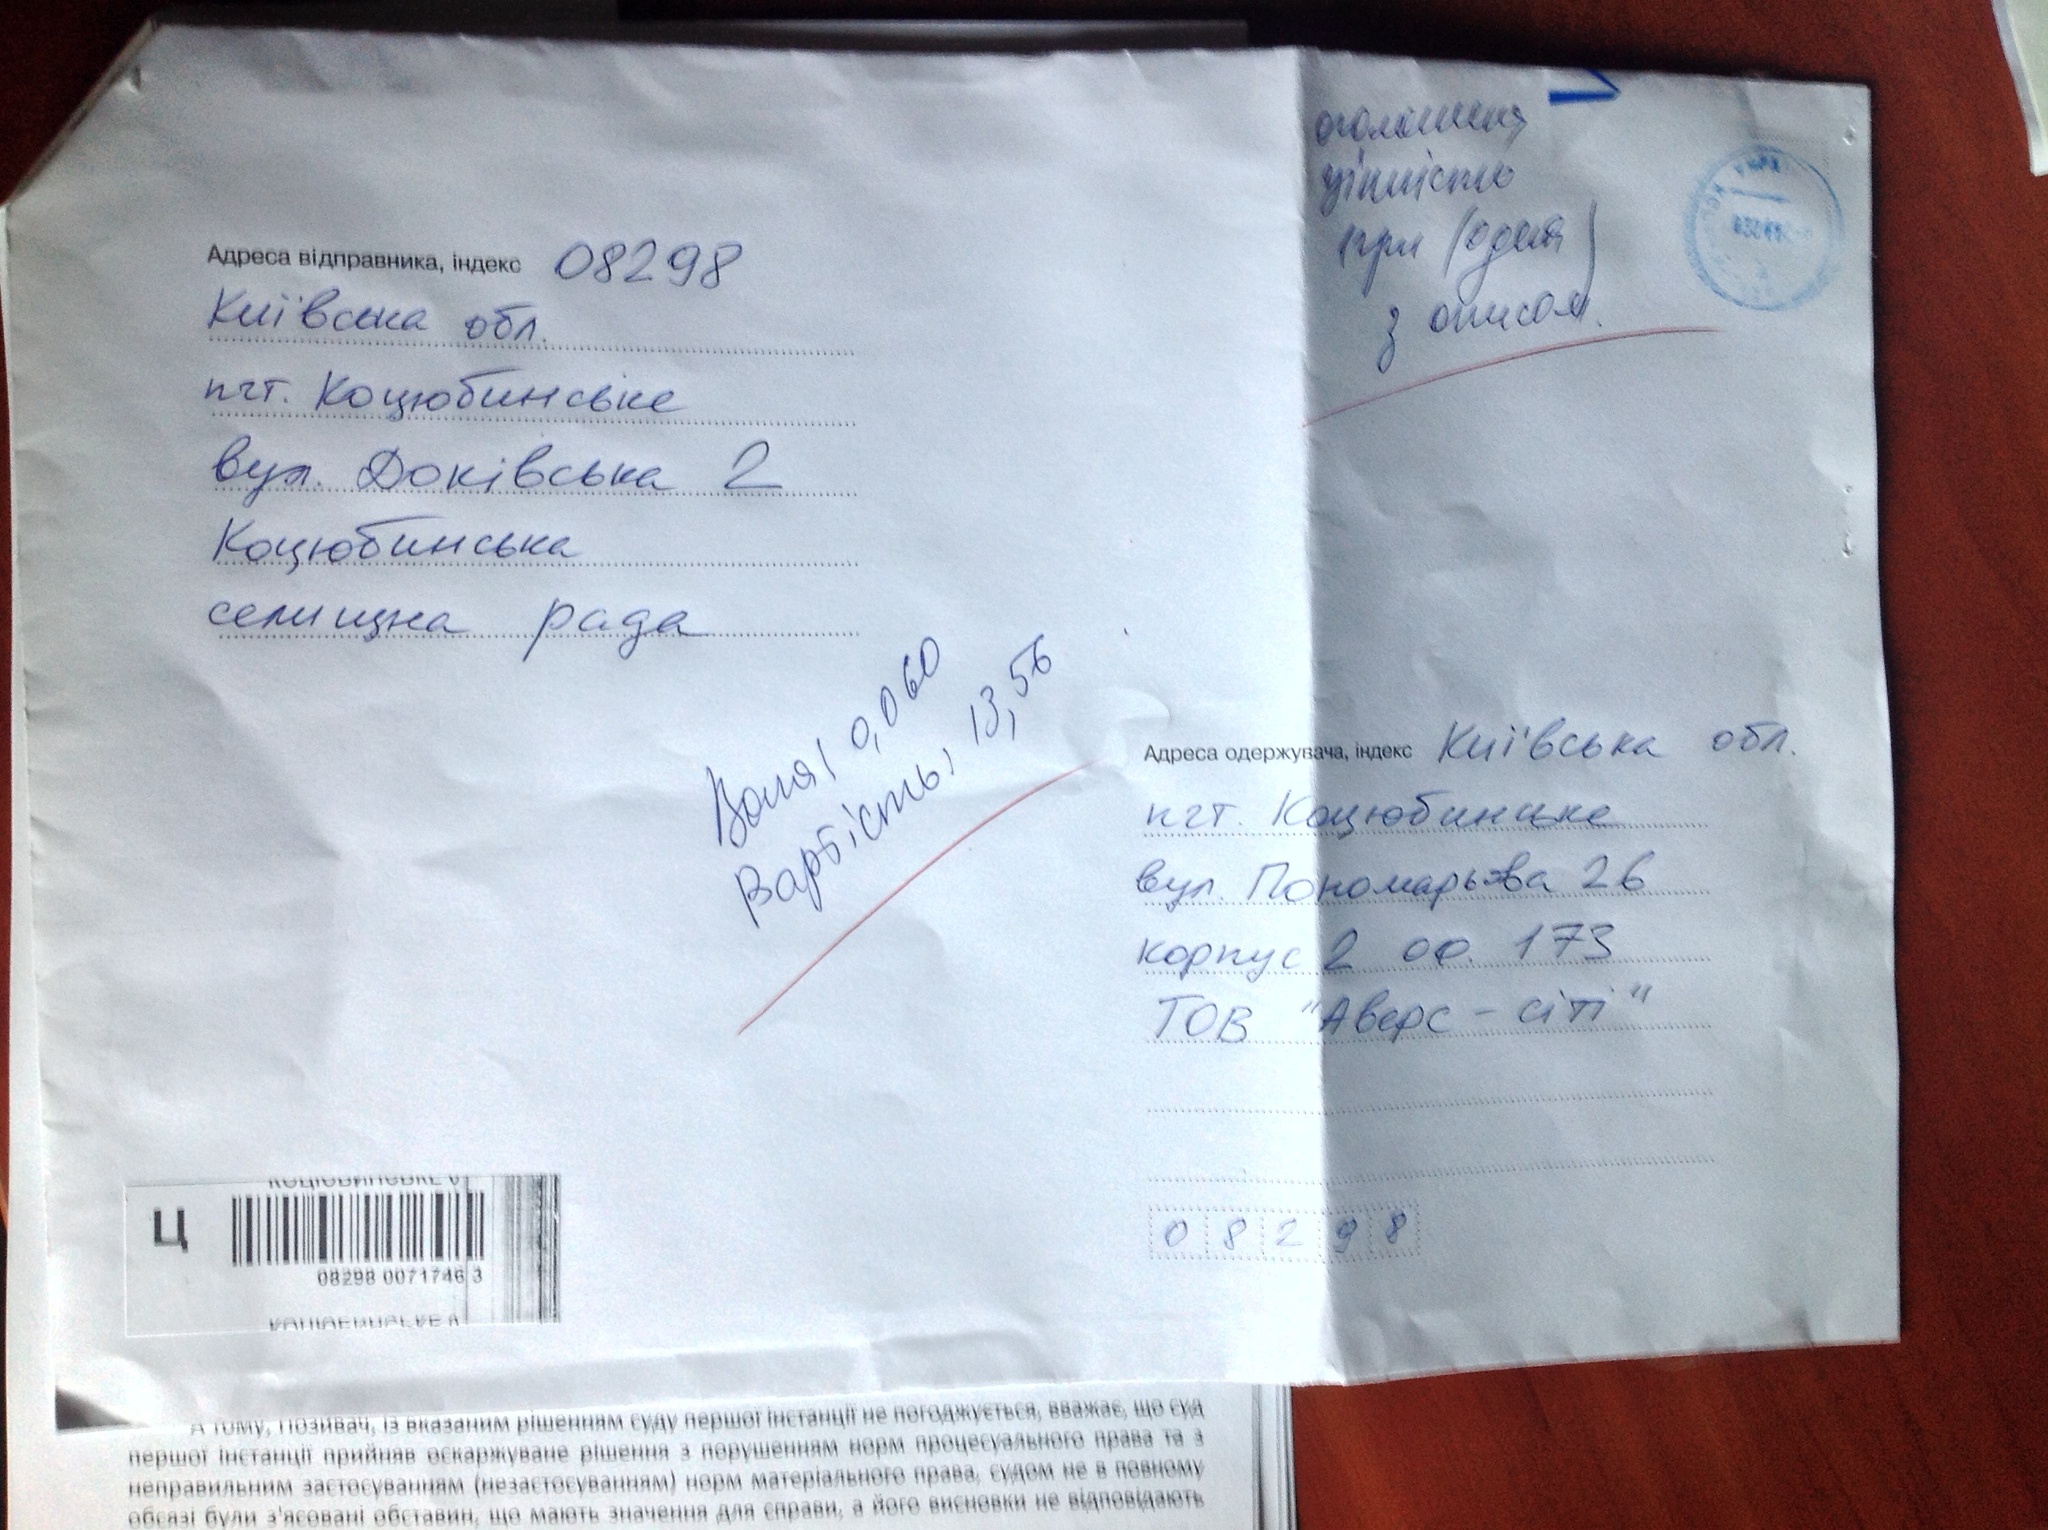 оголошена
цінність
1 грн (одна)
з описом.
Адреса відправника, індекс 08298
Київська обл.
пгт. Коцюбинське
вул. Доківська 2
Коцюбинська
селищна рада
0,060
Вартість, 13,56
Адреса одержувача, індекс Київська обл.
пгт. Коцюбинське
вул. Пономарьова 26
корпус 2 оф. 173
ТОВ "Аверс - сіті"
08298
Ц
08298 0071746 3
А тому, Позивач, із вказаним рішенням суду першої інстанції не погоджується, вважає, що суд
першої інстанції прийняв оскаржуване рішення з порушенням норм процесуального права та з
неправильним застосуванням (незастосуванням) норм матеріального права, судом не в повному
обсязі були з'ясовані обставин, що мають значення для справи, а його висновки не відповідають